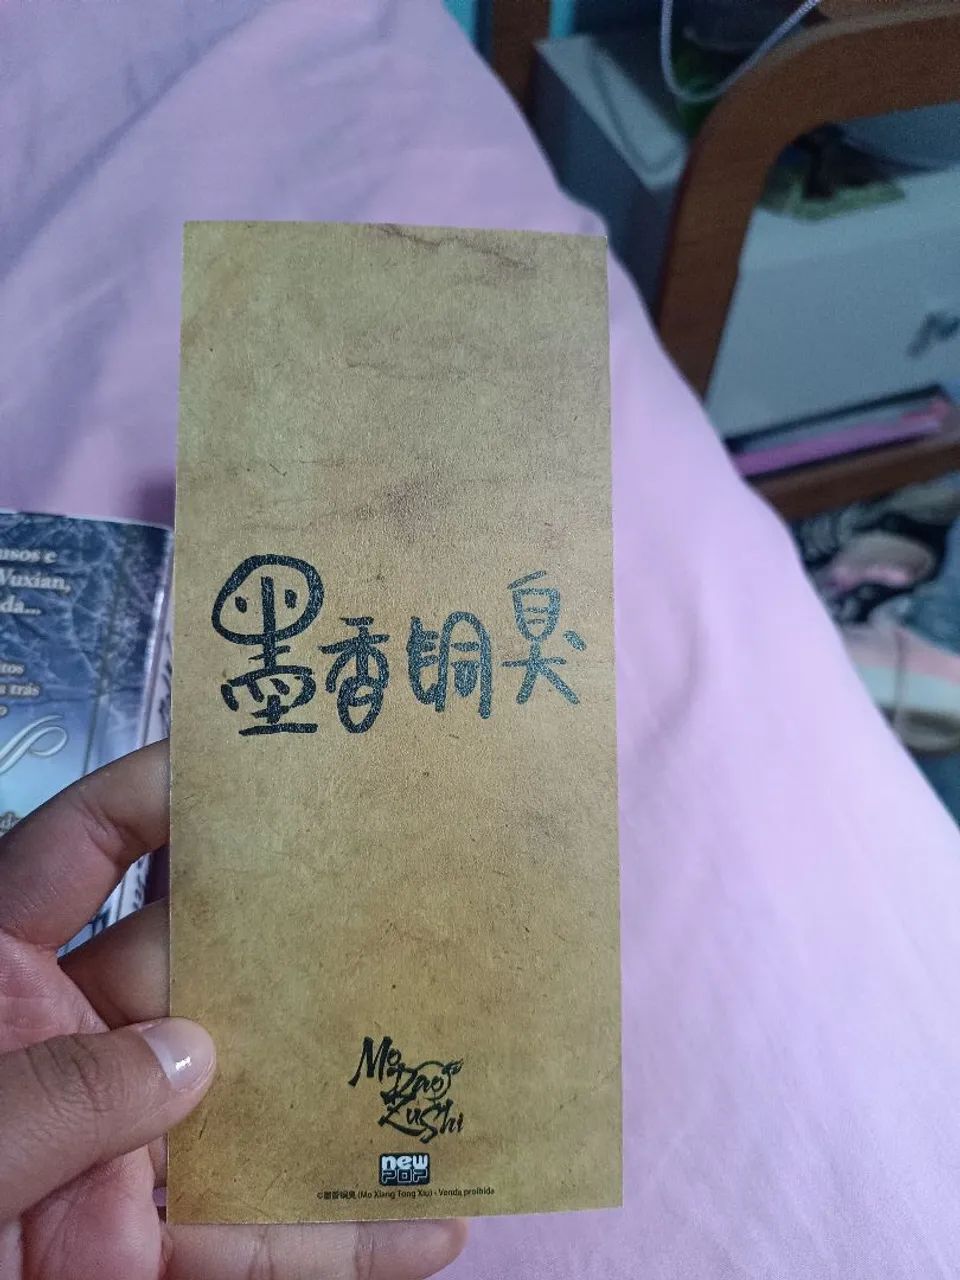 usos e
Wuxian,
da...
tos
s trás
墨香铜臭
Mo
Dao
Zu Shi
new
POP
©墨香铜臭 (Mo Xiang Tong Xiu) - Venda proibida